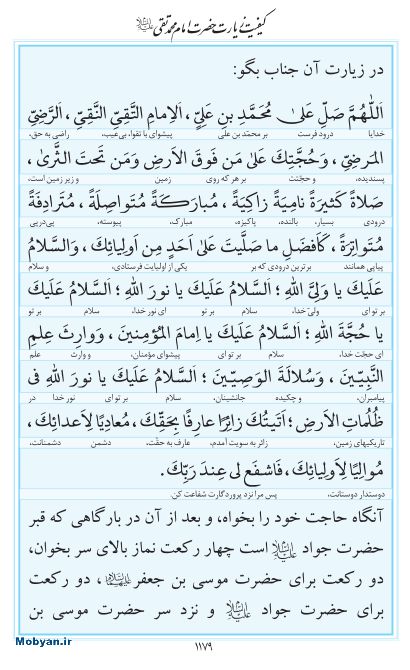 کیفیت زیارت حضرت امام محمد تقی علیه‌السلام
در زیارت آن جناب بگو:
اَللّٰهُمَّ صَلِّ عَلىٰ مُحَمَّدِ بنِ عَلِیٍّ، اَلاِمامِ التَّقِیِّ النَّقِیِّ، اَلرَّضِیِّ
خدایا درود فرست بر محمّد بن علی پیشوای با تقوا، بی‌عیب، راضی به حق،
المَرضِیِّ، وَحُجَّتِكَ عَلىٰ مَن فَوقَ الاَرضِ وَمَن تَحتَ الثَّرىٰ،
پسندیده، و حجّتت بر هر که روی زمین و زیر زمین است،
صَلاةً کَثیرَةً نامِیَةً زاکِیَةً، مُبارَکَةً مُتَواصِلَةً، مُتَرادِفَةً
درودی بسیار، بالنده، پاکیزه، مبارک، پیوسته، پی‌درپی
مُتَواتِرَةً، کَاَفضَلِ ما صَلَّیتَ عَلىٰ اَحَدٍ مِن اَولِیائِكَ، وَالسَّلامُ
پیاپی همانند برترین درودی که بر یکی از اولیایت فرستادی، و سلام
عَلَیكَ یا وَلِیَّ اللهِ؛ اَلسَّلامُ عَلَیكَ یا نورَ اللهِ؛ اَلسَّلامُ عَلَیكَ
بر تو ای ولی خدا، سلام بر تو ای نور خدا، سلام بر تو
یا حُجَّةَ اللهِ؛ اَلسَّلامُ عَلَیكَ یا اِمامَ المُؤمِنینَ، وَوارِثَ عِلمِ
ای حجّت خدا، سلام بر تو ای پیشوای مؤمنان، و وارث علم
النَّبِیّینَ، وَسُلالَةَ الوَصِیّینَ؛ اَلسَّلامُ عَلَیكَ یا نورَ اللهِ فى
پیامبران، و چکیده جانشینان، سلام بر تو ای نور خدا در
ظُلُماتِ الاَرضِ؛ اَتَیتُكَ زائِرًا عارِفًا بِحَقِّكَ، مُعادِیًا لِاَعدائِكَ،
تاریکیهای زمین، زائر به سویت آمدم، عارف به حقّت، دشمن دشمنانت،
مُوالِیًا لِاَولِیائِكَ، فَاشفَع لى عِندَ رَبِّكَ.
دوستدار دوستانت، پس مرا نزد پروردگارت شفاعت کن.
آنگاه حاجت خود را بخواه، و بعد از آن در بارگاهی که قبر
حضرت جواد علیه‌السلام است چهار رکعت نماز بالای سر بخوان،
دو رکعت برای حضرت موسی بن جعفر علیهماالسلام، دو رکعت
برای حضرت جواد علیه‌السلام و نزد سر حضرت موسی بن
Mobyan.ir
۱۱۷۹